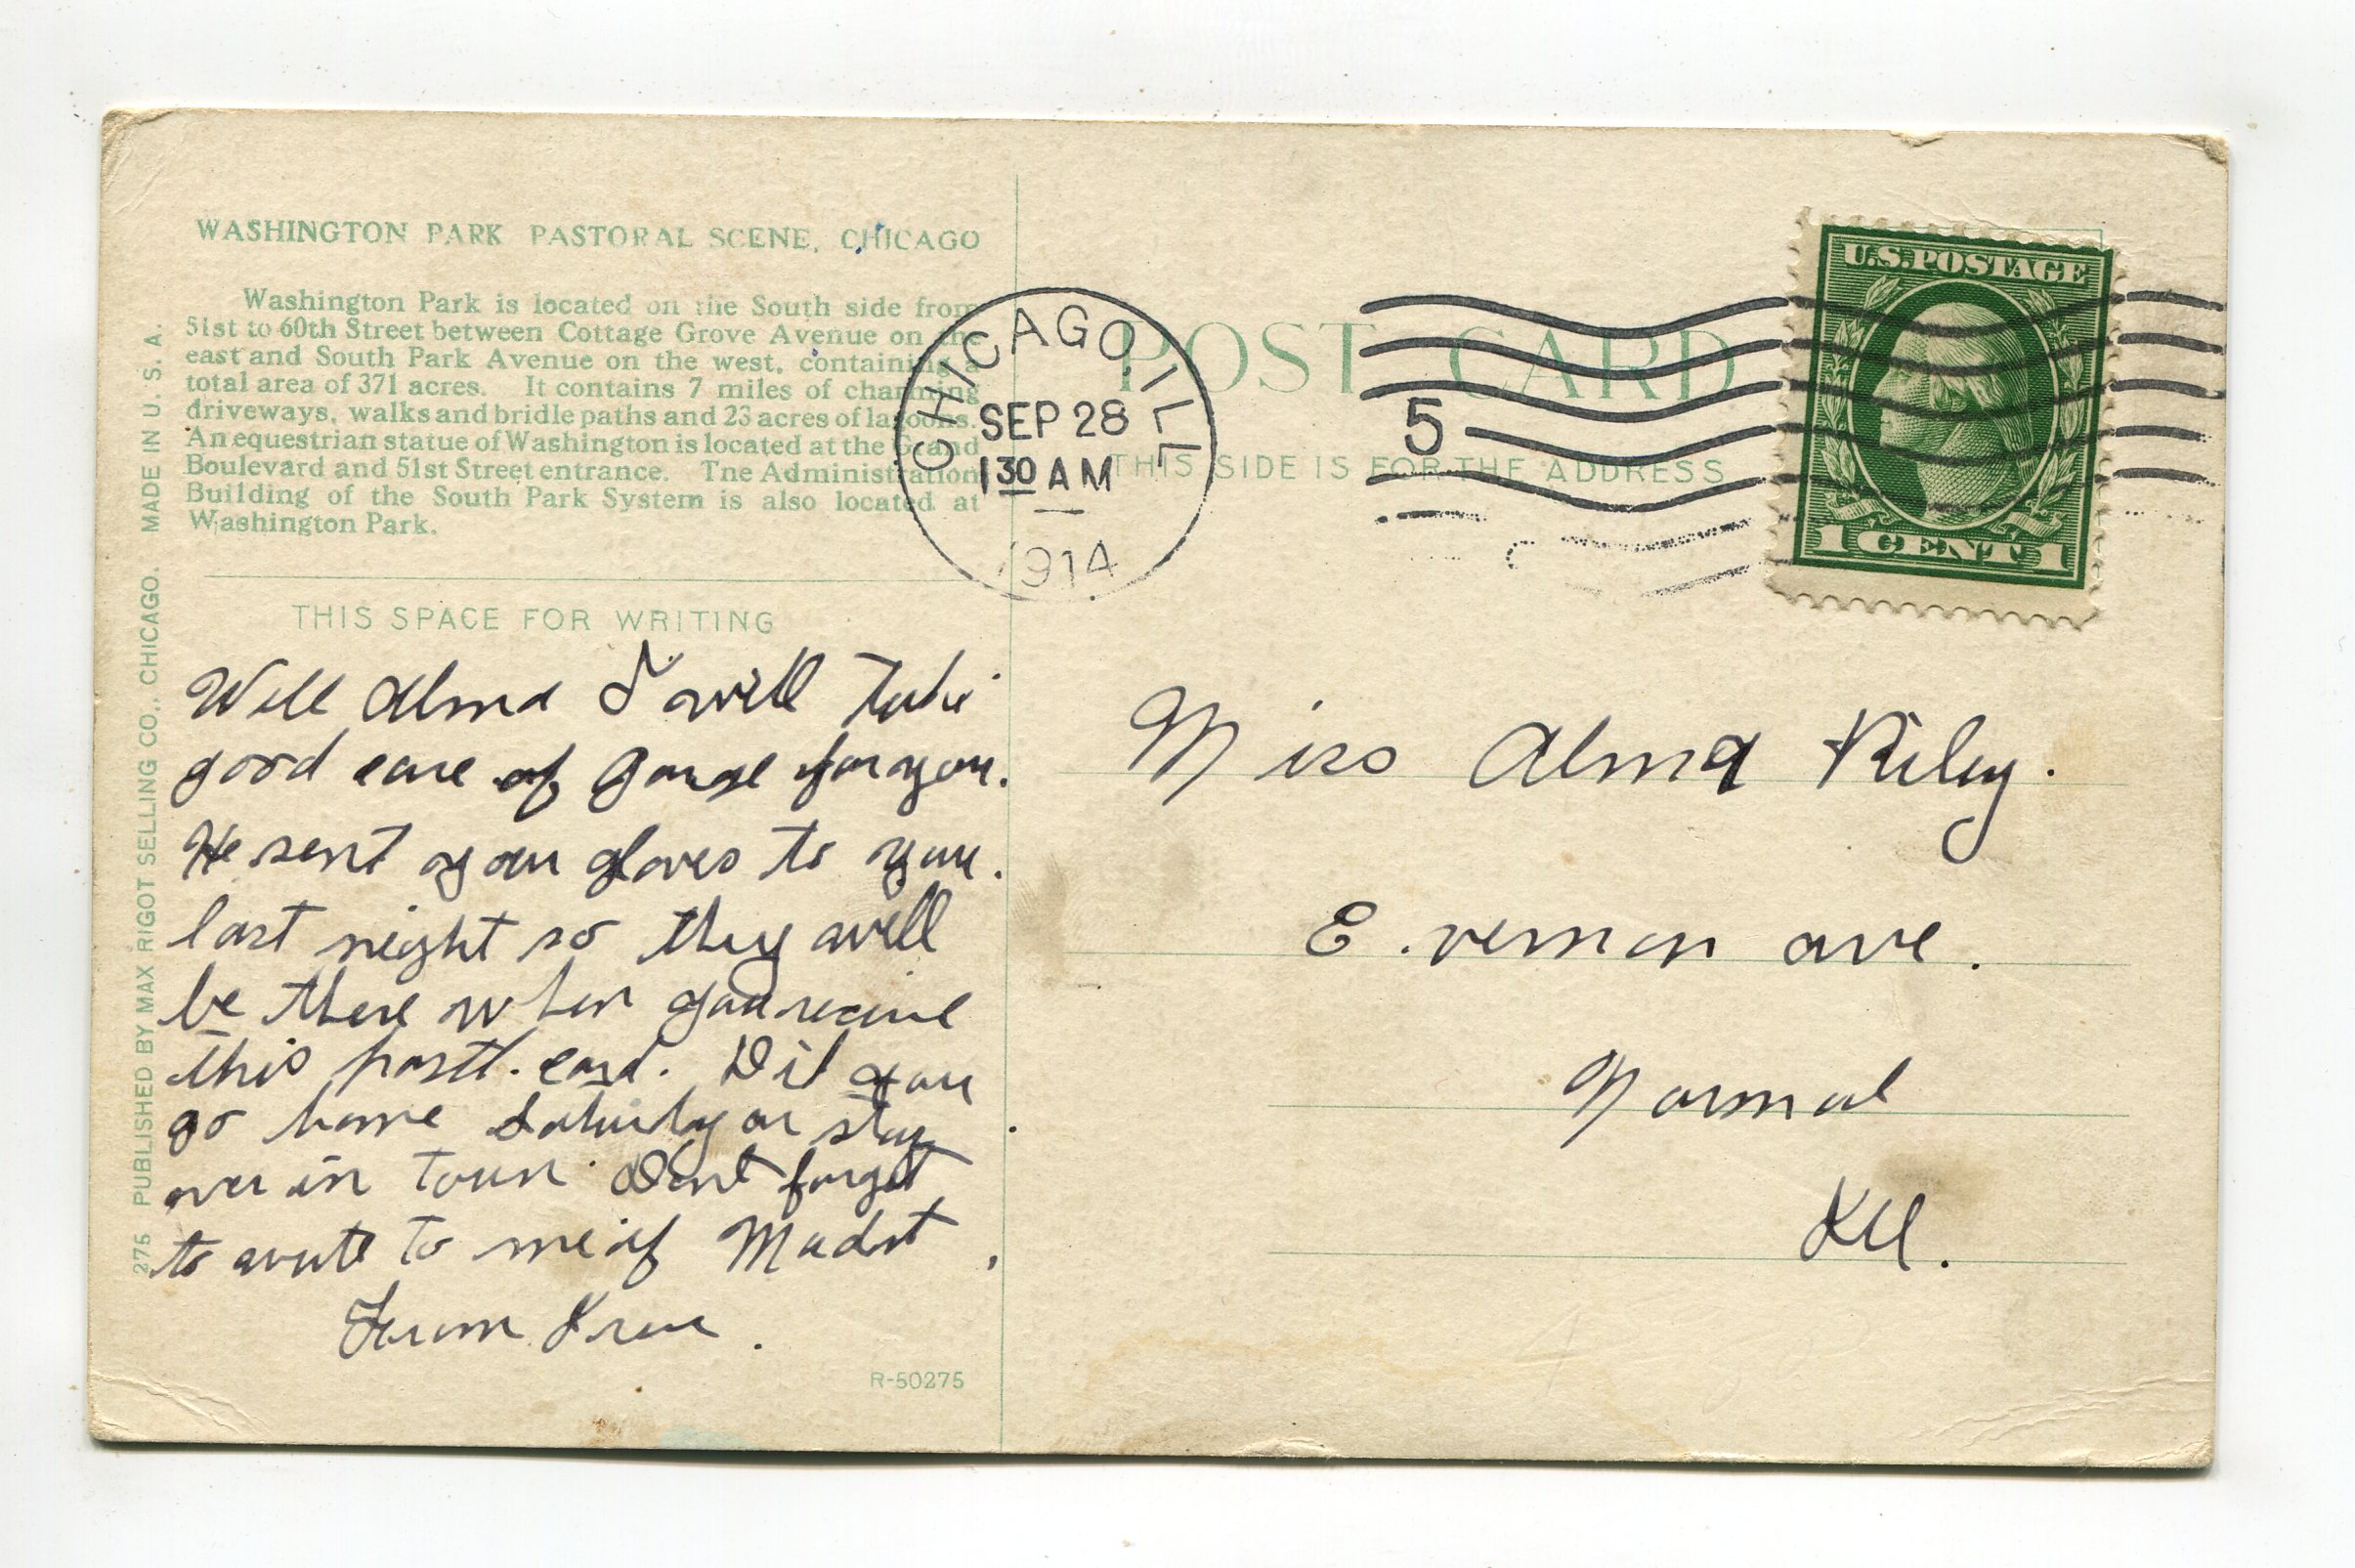 WASHINGTON PARK PASTORAL SCENE, CHICAGO
Washington Park is located on the South side from
51st to 60th Street between Cottage Grove Avenue on the
east and South Park Avenue on the west, containing a
total area of 371 acres. It contains 7 miles of charming
driveways, walks and bridle paths and 23 acres of lagoons.
An equestrian statue of Washington is located at the Grand
Boulevard and 51st Street entrance. Tne Administration
Building of the South Park System is also located at
Washington Park.
THIS SPACE FOR WRITING
Will Alma I will Take
good care of for you.
He sent your gloves to you.
last night so they will
be there when you recive
this postl. card. Did you
go home or stay
over in Town. Dont forget
to write to me if
From
R-50275
275 PUBLISHED BY MAX RIGOT SELLING CO., CHICAGO. MADE IN U. S. A.
CHICAGO, ILL
SEP 28
1 30 AM
1914
5
POST CARD
THIS SIDE IS FOR THE ADDRESS
U.S. POSTAGE
1 CENT 1
Miss Alma Riley.
E. vernon ave.
Normal
Ill.